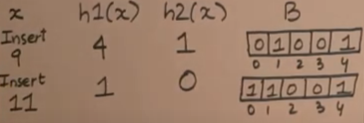 x h1(x) h2(x) B
Insert 9 4 1 0 1 0 0 1
0 1 2 3 4
Insert 11 1 0 1 1 0 0 1
0 1 2 3 4